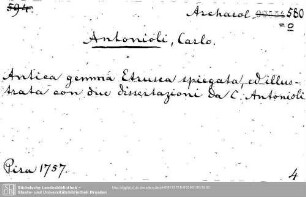 594
Archaeol 580
o
Antonioli, Carlo.
Antica gemma Etrusca spiegata, ed illus-
trata con due dissertazioni da C. Antonioli
Pisa 1757.
4
Sächsische Landesbibliothek -
Staats- und Universitätsbibliothek Dresden